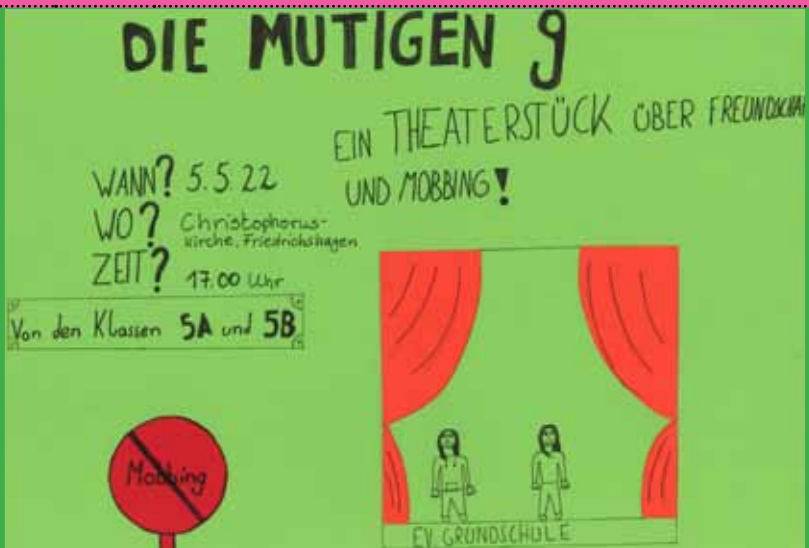 DIE MUTIGEN 9
EIN THEATERSTÜCK ÜBER
UND MOBBING!
WANN? 5.5.22
WO? Christophorus-
kirche, Friedrichshagen
ZEIT? 17.00 Uhr
Von den Klassen 5A und 5B
Mobbing
EV. GRUNDSCHULE